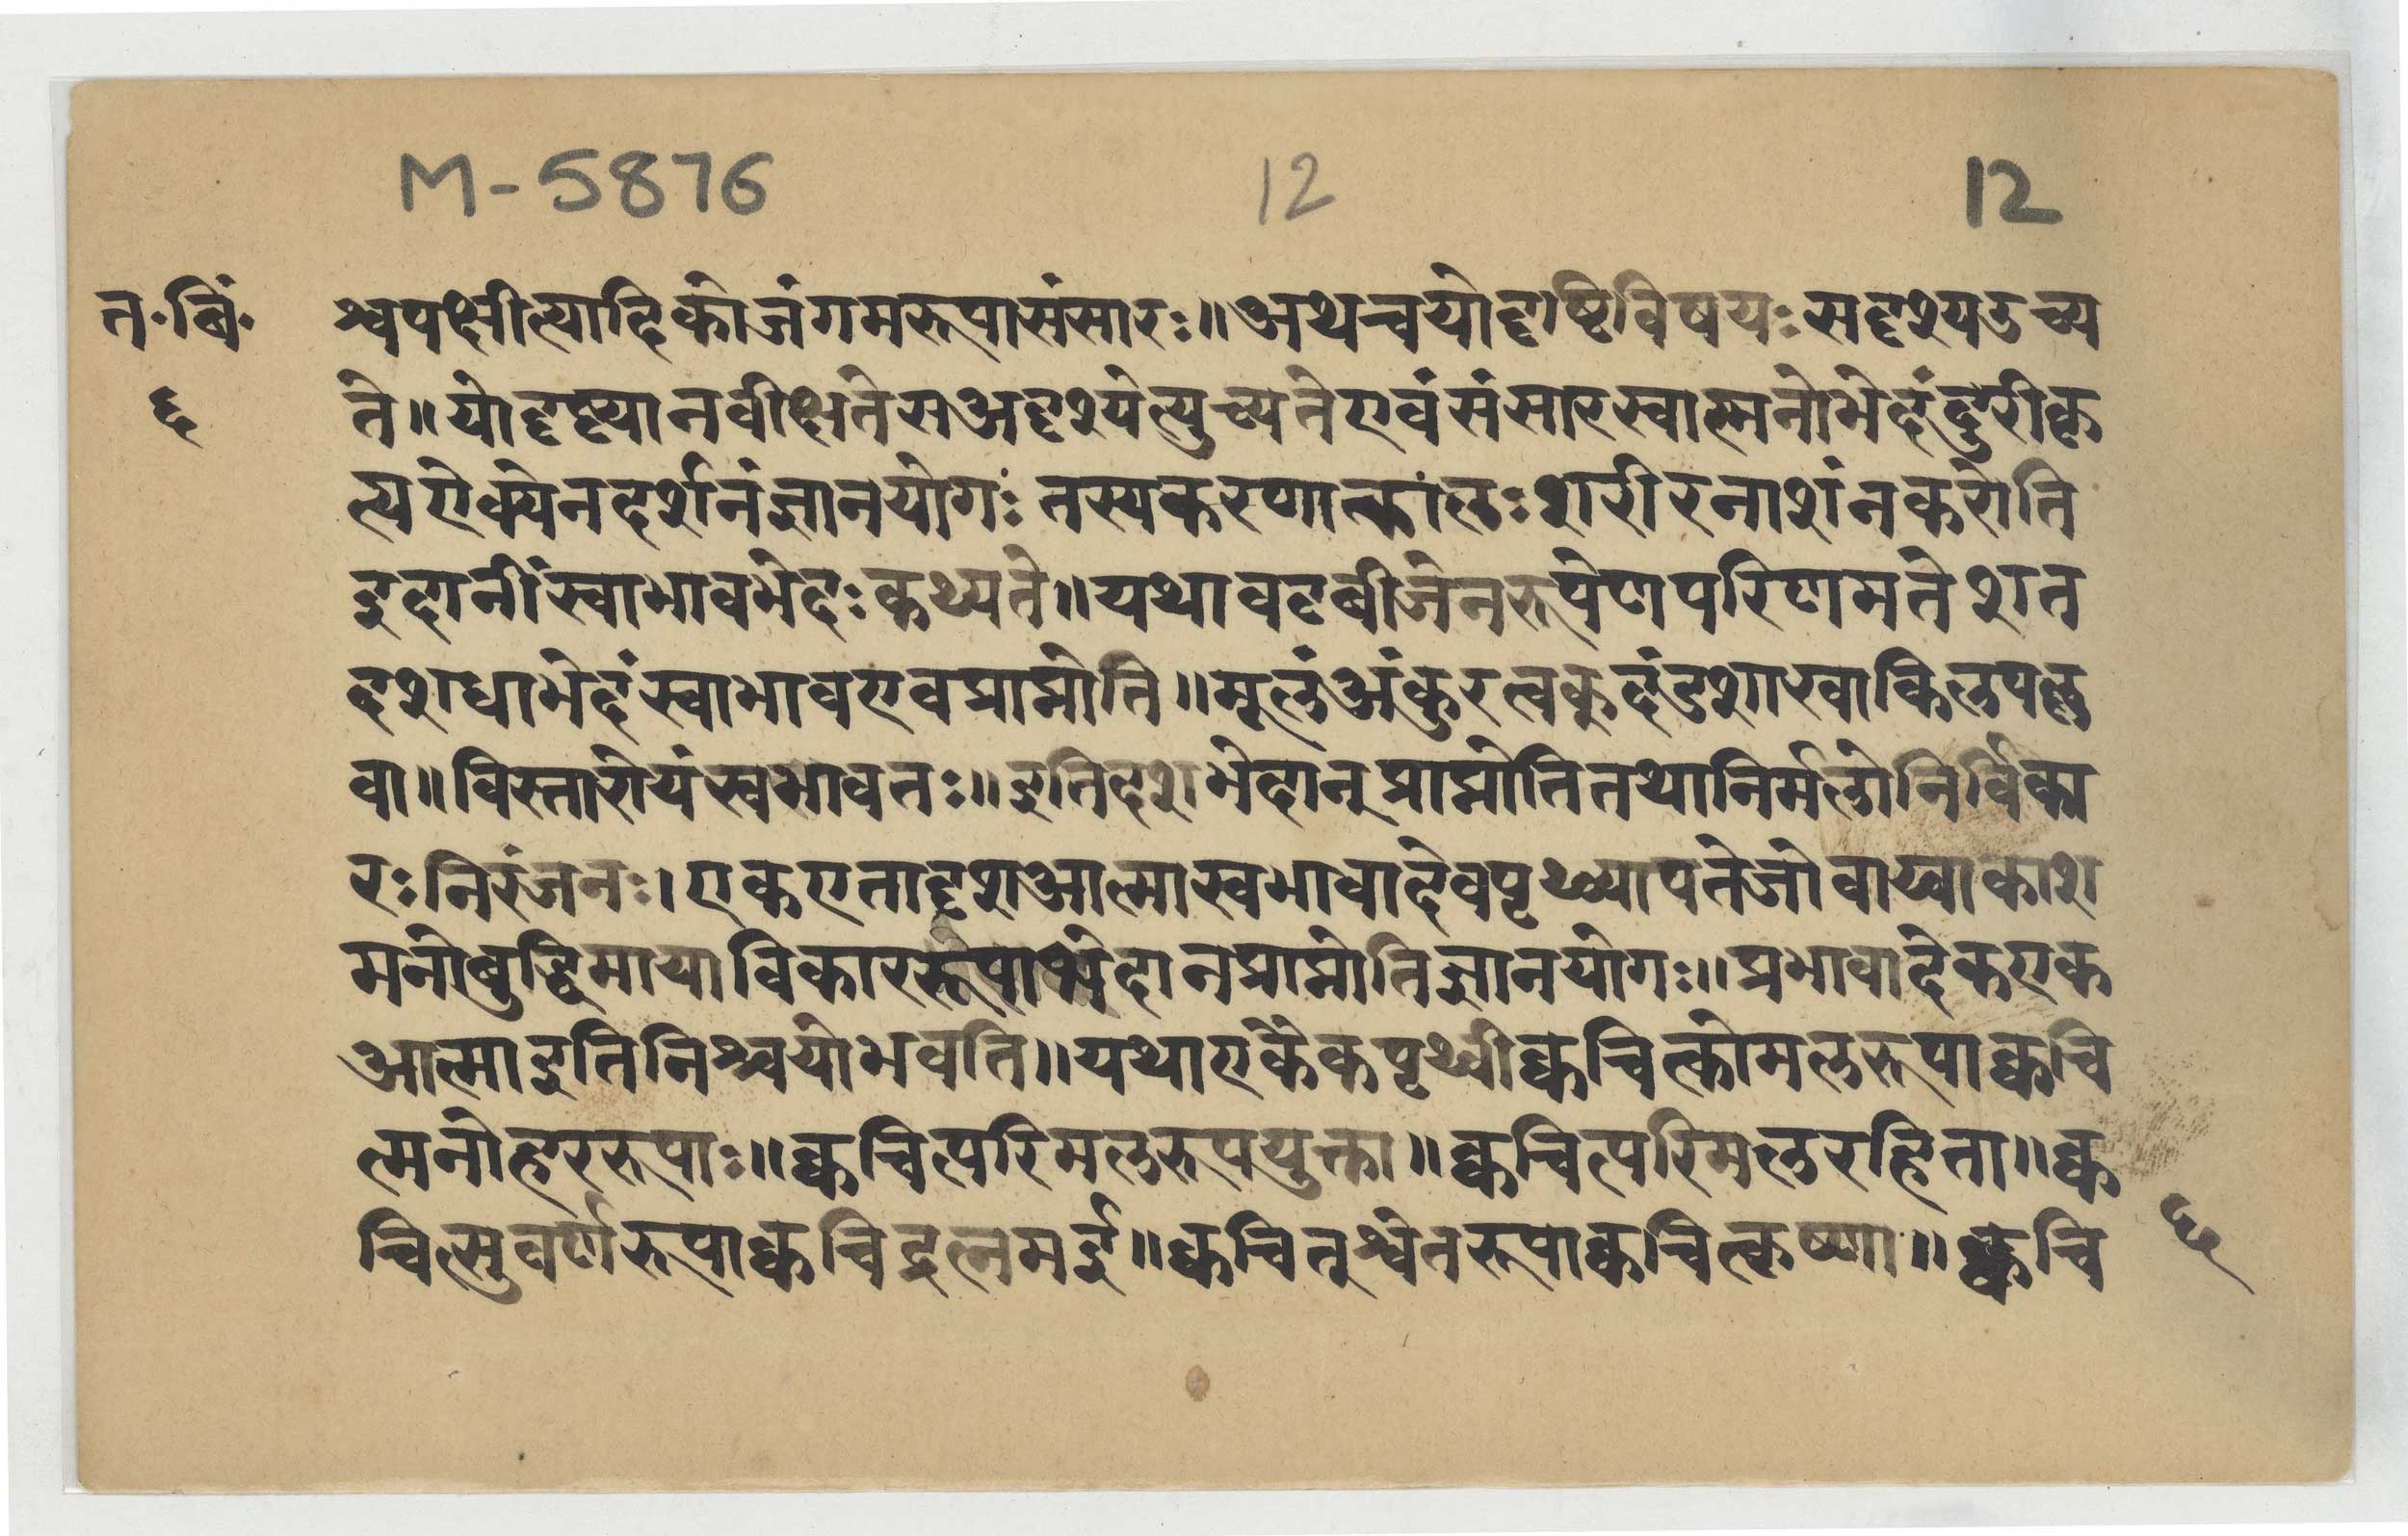 M-5876 12 12
त॰ बिं॰ श्वपक्षीत्यादिको जंगमरूपासंसारः॥ अथ च यो दृष्टिविषयः स दृश्य उच्य
६ ते॥ यो दृष्ट्या न वीक्षते स अदृश्येत्युच्यते एवं संसारस्वात्मनोभेदं दुरीकृ
त्य ऐक्येन दर्शनं ज्ञानयोगः तस्य करणात्कालः शरीरनाशं न करोति
इदानीं स्वाभावभेदः कथ्यते॥ यथा वटबीजेन रूपेण परिणमते शत
दशधा भेदं स्वाभाव एव प्राप्नोति॥ मूलं अंकुरत्वक्दंडशाखाकिलपल्ल
वा॥ विस्तारोयं स्वभावतः॥ इति दश भेदान् प्राप्नोति तथा निर्मलो निर्विका
रः निरंजनः। एक एतादृश आत्मा स्वभावादेव पृथ्व्यापतेजोवाय्वाकाश
मनोबुद्धिमायाविकाररूपाभेदान प्राप्नोति ज्ञानयोगः॥ प्रभावादेक एक
आत्मा इति निश्चयो भवति॥ यथा एकैक पृथ्वी क्वचित्कोमलरूपा क्वचि
त्मनोहररूपाः॥ क्वचित्परिमलरूपयुक्ता॥ क्वचित्परिमलरहिता॥ क्व
चित्सुवर्णरूपा क्वचिद्रत्नमई॥ क्वचित् श्वेतरूपा क्वचित्कृष्णा॥ क्वचि
६